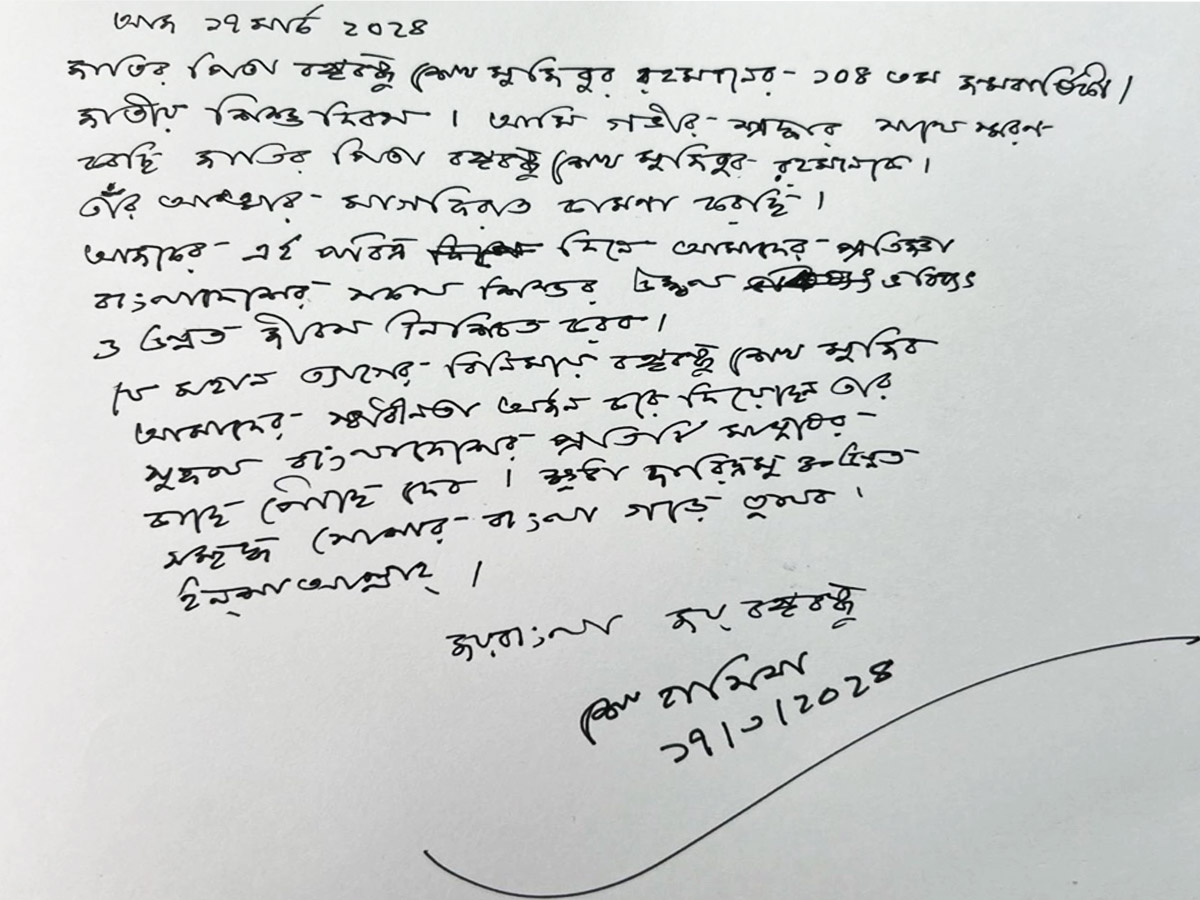 আজ ১৭ মার্চ ২০২৪
জাতির পিতা বঙ্গবন্ধু শেখ মুজিবুর রহমানের ১০৪ তম জন্মবার্ষিকী।
জাতীয় শিশু দিবস। আমি গভীর শ্রদ্ধার সাথে স্মরণ
করছি জাতির পিতা বঙ্গবন্ধু শেখ মুজিবুর রহমানকে।
তাঁর আত্মার মাগফিরাত কামনা করছি।
আজকের এই পবিত্র দিনে আমাদের প্রতিজ্ঞা
বাংলাদেশের সকল শিশুর উজ্জ্বল ভবিষ্যৎ
ও উন্নত জীবন নিশ্চিত করব।
যে মহান ত্যাগের বিনিময়ে বঙ্গবন্ধু শেখ মুজিব
আমাদের স্বাধীনতা অর্জন করে দিয়েছেন তার
সুফল বাংলাদেশের প্রতিটি মানুষের
কাছে পৌঁছে দেব। ক্ষুধা দারিদ্রমুক্ত উন্নত
সমৃদ্ধ সোনার বাংলা গড়ে তুলব।
ইনশাআল্লাহ্।
জয় বাংলা জয় বঙ্গবন্ধু
শেখ হাসিনা
১৭/৩/২০২৪